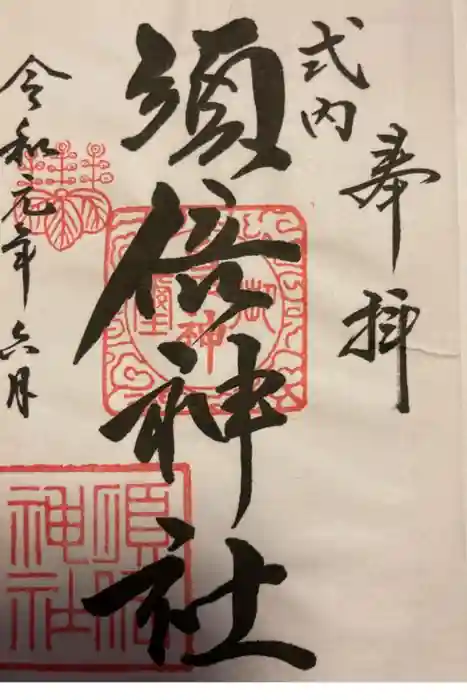 奉拝
式内
須倍神社
令和元年六月
須倍神社